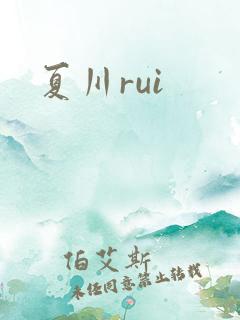 夏川rui
伯艾斯
未经同意禁止转载